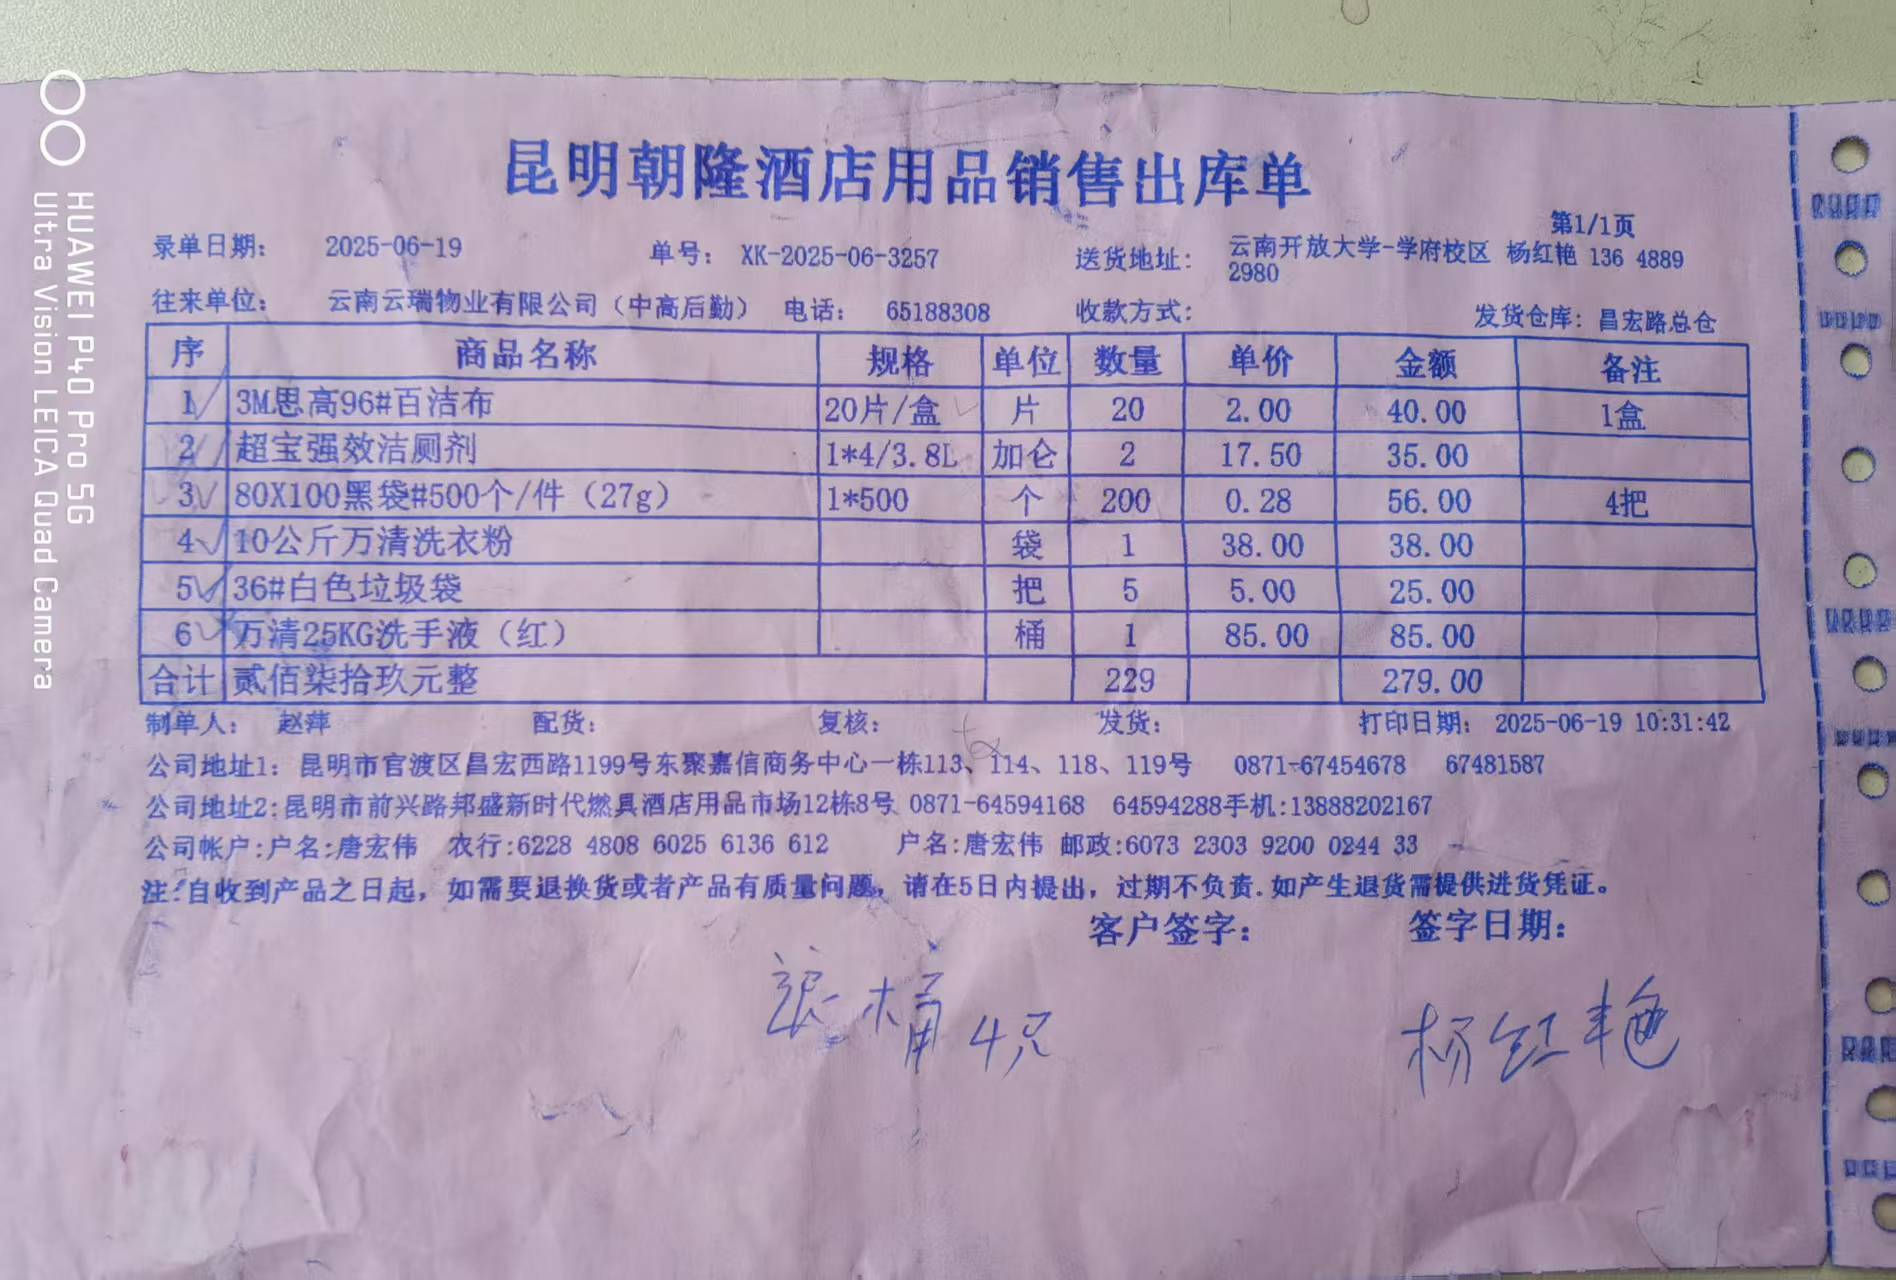 昆明朝隆酒店用品销售出库单
第1/1页
录单日期： 2025-06-19 单号： XK-2025-06-3257 送货地址： 云南开放大学-学府校区 杨红艳 136 4889
2980
往来单位： 云南云瑞物业有限公司（中高后勤） 电话： 65188308 收款方式： 发货仓库：昌宏路总仓
序 商品名称 规格 单位 数量 单价 金额 备注
1 3M思高96#百洁布 20片/盒 片 20 2.00 40.00 1盒
2 超宝强效洁厕剂 1*4/3.8L 加仑 2 17.50 35.00
3 80X100黑袋#500个/件（27g） 1*500 个 200 0.28 56.00 4把
4 10公斤万清洗衣粉 袋 1 38.00 38.00
5 36#白色垃圾袋 把 5 5.00 25.00
6 万清25KG洗手液（红） 桶 1 85.00 85.00
合计 贰佰柒拾玖元整 229 279.00
制单人： 赵萍 配货： 复核： 发货： 打印日期： 2025-06-19 10:31:42
公司地址1：昆明市官渡区昌宏西路1199号东聚嘉信商务中心一栋113、114、118、119号 0871-67454678 67481587
公司地址2:昆明市前兴路邦盛新时代燃具酒店用品市场12栋8号 0871-64594168 64594288手机:13888202167
公司帐户:户名:唐宏伟 农行:6228 4808 6025 6136 612 户名:唐宏伟 邮政:6073 2303 9200 0244 33
注:自收到产品之日起，如需要退换货或者产品有质量问题，请在5日内提出，过期不负责.如产生退货需提供进货凭证。
客户签字： 签字日期：
桶4只
杨红艳
HUAWEI P40 Pro 5G
Ultra Vision LEICA Quad Camera